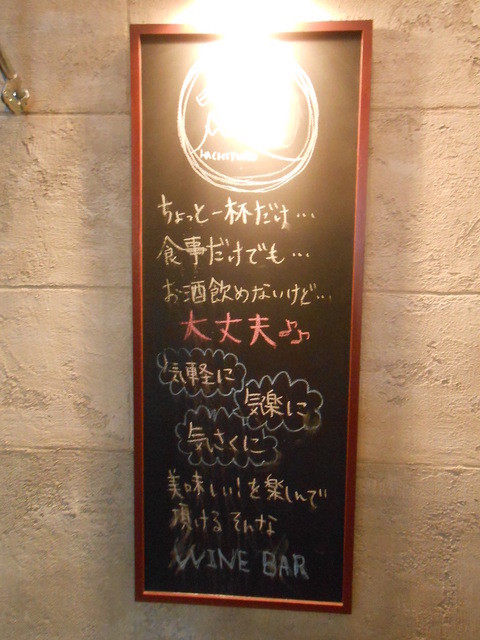 ちょっと一杯だけ…
食事だけでも…
お酒飲めないけど…
大丈夫♪♪
気軽に
気楽に
気さくに
美味しい!を楽しんで
頂けるそんな
WINE BAR